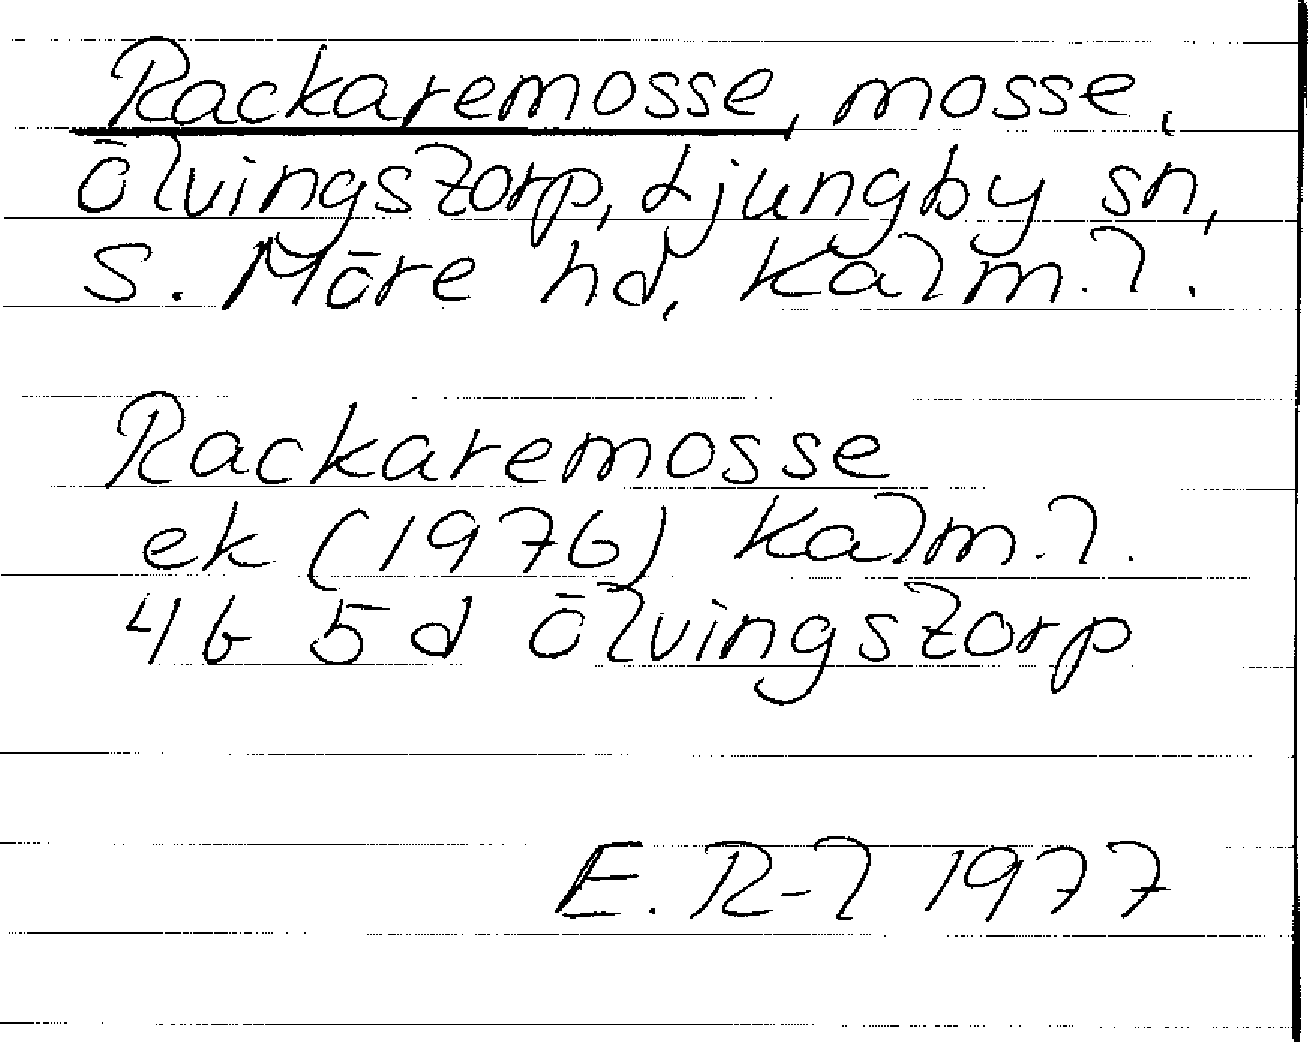 Rackaremosse, mosse,
Ölvingstorp, Ljungby sn,
S. Möre hd, Kalm. l.
Rackaremosse
ek (1976) Kalm. l.
4b 5d Ölvingstorp
E. R-l 1977